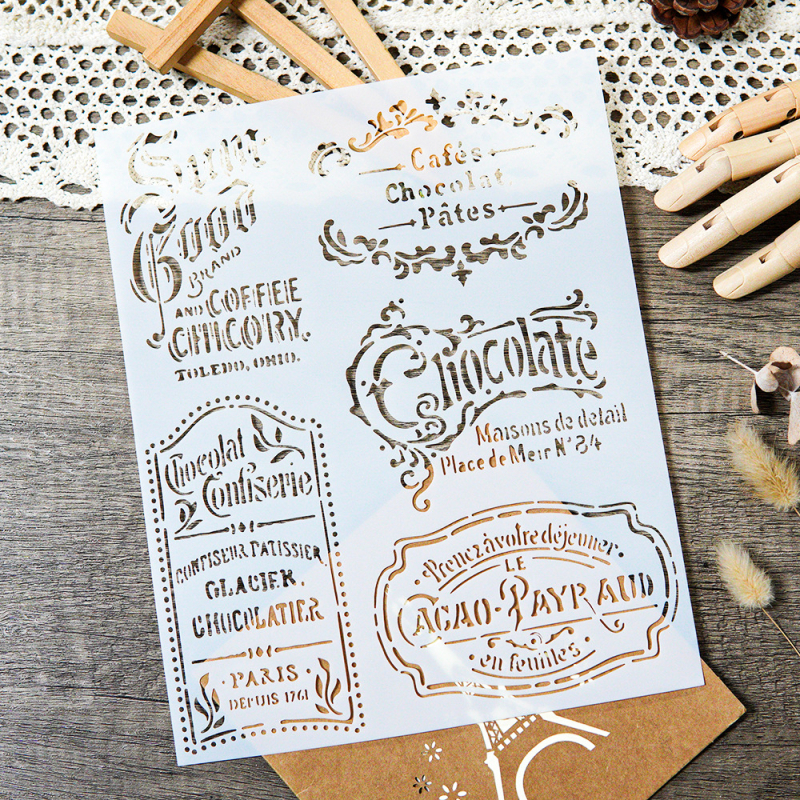 Summ
Good
BRAND
AND COFFEE
CHICORY.
TOLEDO, OHIO.
Cafés
Chocolat
Pâtes
Chocolate
Maisons de detail
Place de Meir N° 34
Chocolat
& Confiserie
CONFISEUR PATISSIER
GLACIER,
CHOCOLATIER
· PARIS ·
DEPUIS 1761
· Prenez à votre déjeuner ·
LE
CACAO-PAYRAUD
· en feuilles ·